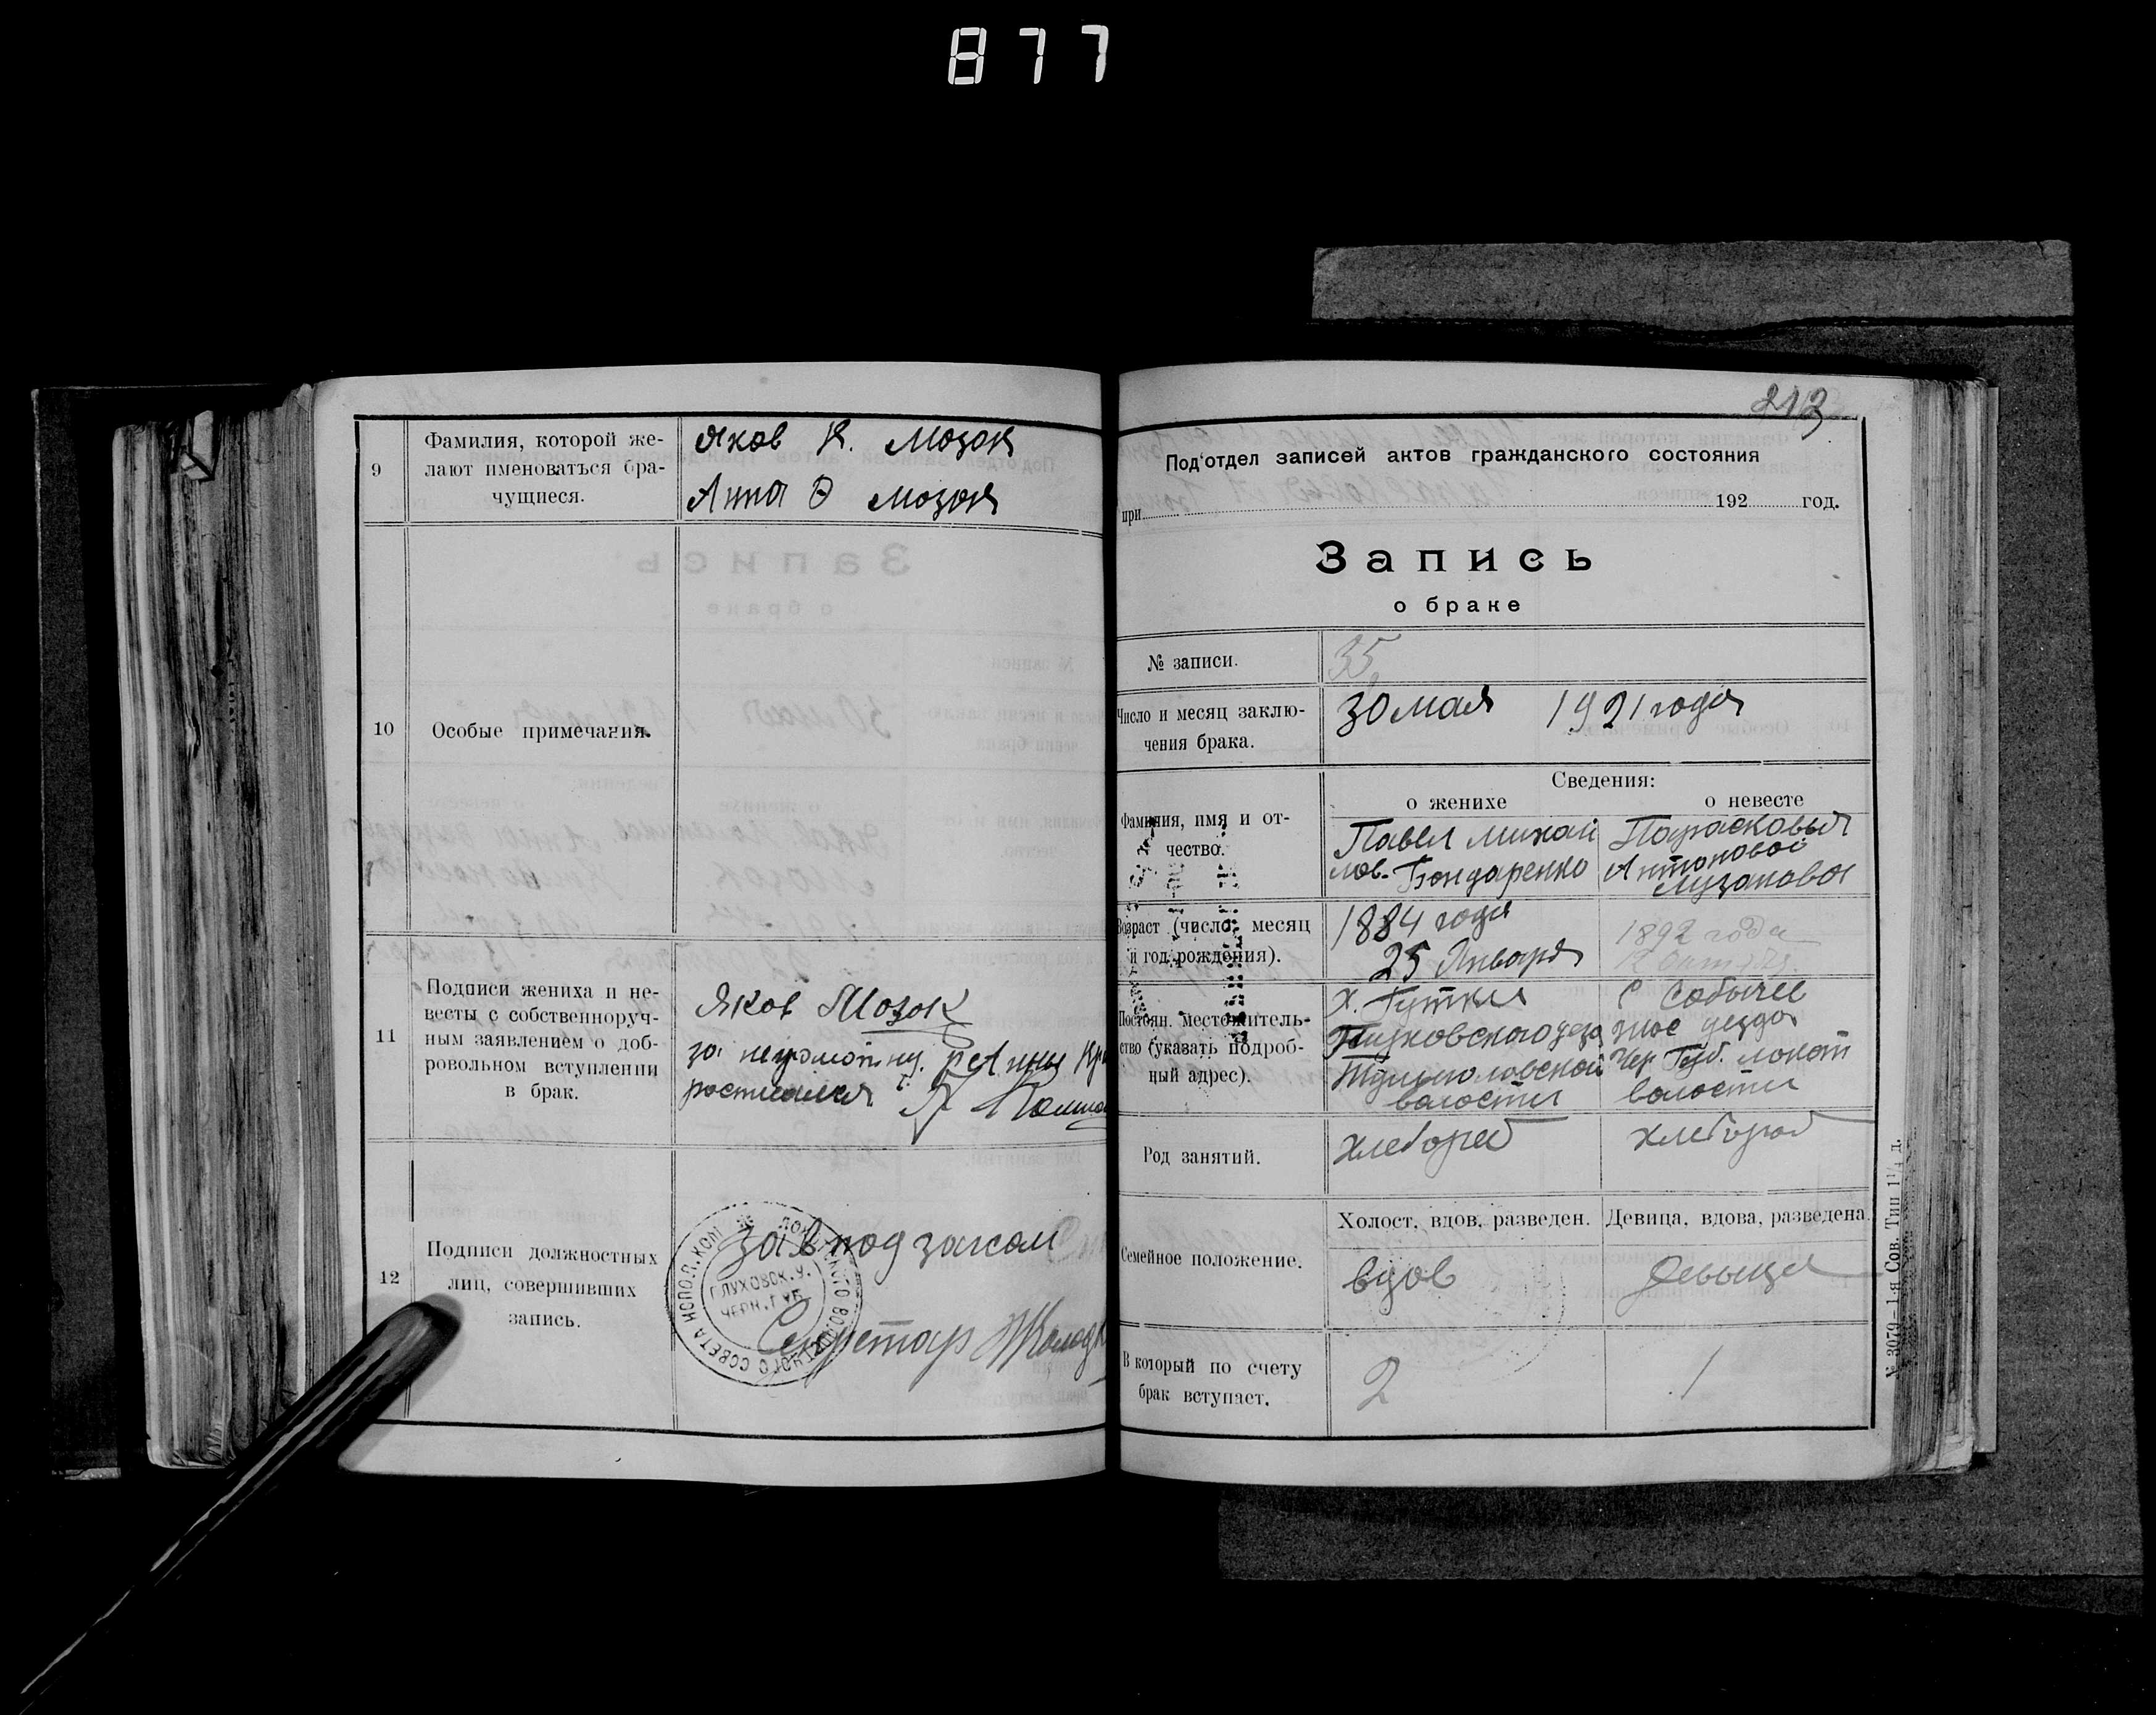 877
9
Фамилия, которой же-
лают именоваться бра-
чущиеся.
Яков К. Мозок
Анна Ѳ Мозок
10
Особые примечания.
11
Подписи жениха и не-
весты с собственноруч-
ным заявлением о доб-
ровольном вступлении
в брак.
Яков Мозок
за неграмотну.
12
Подписи должностных
лиц, совершивших
запись.
Зав подзагсом
ГЛУХОВСК. У.
ЧЕРН. ГУБ.
Секретар
213
Под'отдел записей актов гражданского состояния
при 192 год.
Запись
о браке
№ записи.
35
Число и месяц заклю-
чения брака.
30 мая 1921 года
Сведения:
о женихе
о невесте
Фамилия, имя и от-
чество.
Павел Михай
лов. Бондаренко
Парасковья
Антоновой
Лузанова
Возраст (число, месяц
и год рождения).
1884 года
25 Января
1892 года
12
Постоян. местожитель-
ство (указать подроб-
ный адрес).
Х. Гутки
Глуховского
волости
С Собычев
уезда
Чер Губ.
волости
Род занятий.
Хлебороб
хлебороб
Семейное положение.
Холост, вдов, разведен.
Девица, вдова, разведена
вдов
девица
В который по счету
брак вступает.
2
1
№ 3079—1-я Сов. Тип 1¹/₄ д.